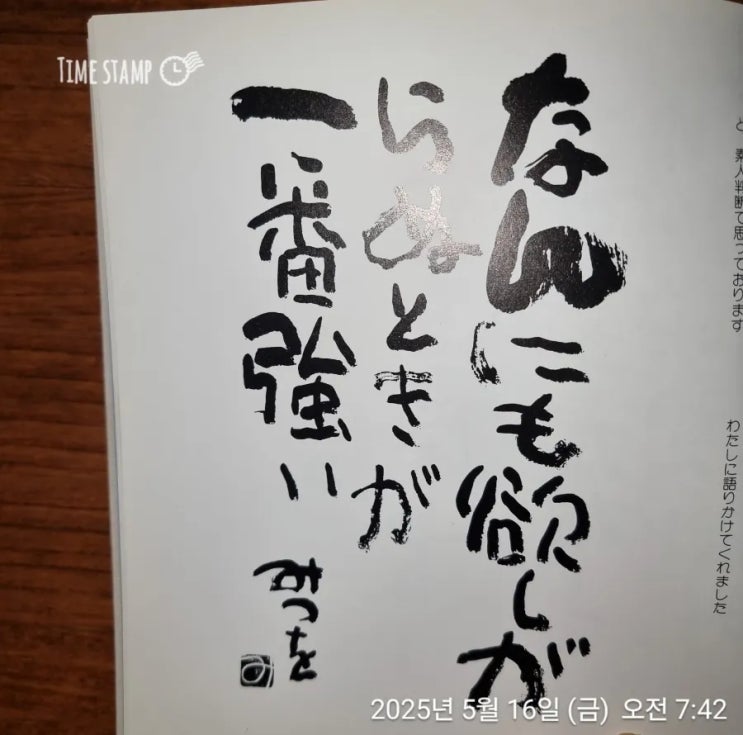 TIME STAMP
と 素人判断で思っております
わたしに語りかけてくれました
なんにも欲しが
らぬときが
一番強い
みつを
み
2025년 5월 16일 (금) 오전 7:42